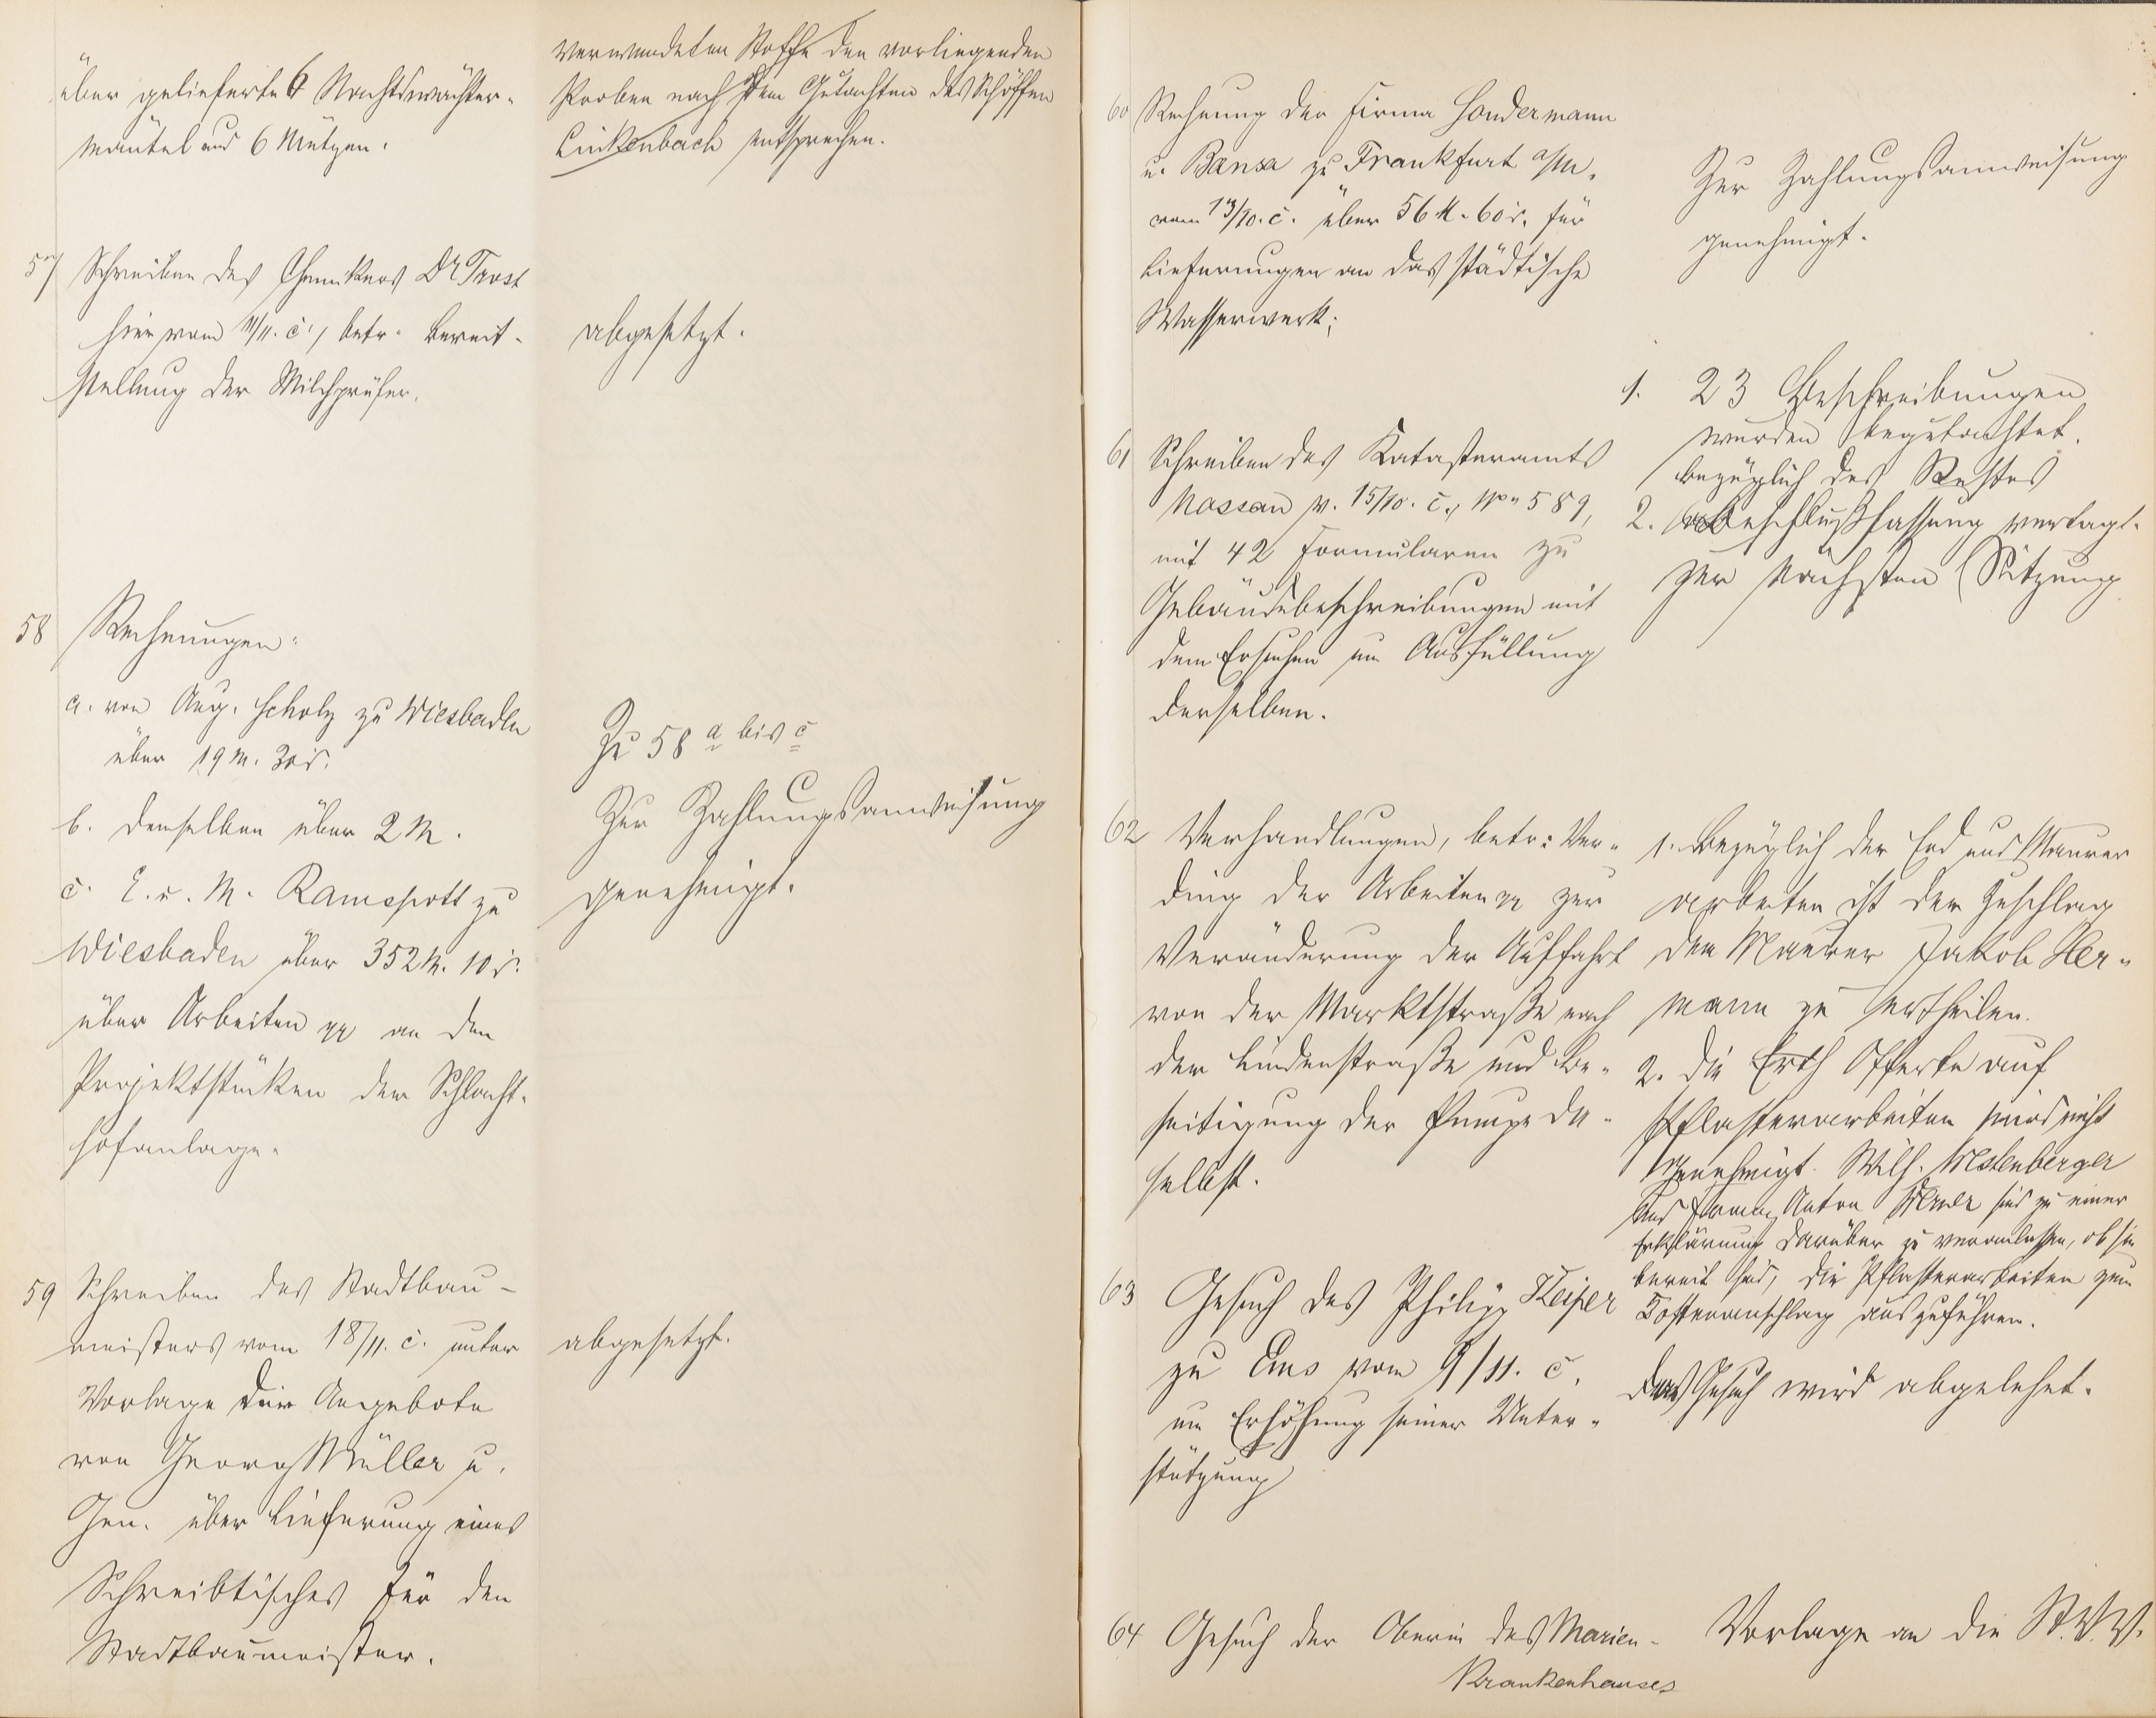 über gelieferte 6 Nachtswächter-
mäntel und 6 Mützen.
verwendeten Stoffe den vorliegenden
Proben nach dem Gutachten des Schöffen
Linkenbach entsprechen.
57 Schreiben des Chemikers Dr Trost
hier vom 11/11. c., betr. Bereit-
stellung der Milchprüfer.
abgesetzt.
58 Rechnungen:
a. von Aug. Scholz zu Wiesbaden
über 19 M. 30 d.
b. denselben über 2 M.
c. E. u. M. Ramspott zu
Wiesbaden über 352 M. 10 d.
über Arbeiten pp an den
Projektstücken der Schlacht-
hofanlage.
Zu 58 a bis c
Zur Zahlungsanweisung
genehmigt.
59 Schreiben des Stadtbau-
meisters vom 18/11. c. unter
Vorlage der Angebote
von Georg Müller u.
Gen. über Lieferung eines
Schreibtisches für den
Stadtbaumeister.
abgesetzt.
60 Rechnung der Firma Sondermann
u. Bansa zu Frankfurt a/M.
vom 13/10. c. über 56 M. 60 d. für
Lieferungen an das städtische
Wasserwerk;
Zur Zahlungsanweisung
genehmigt.
61 Schreiben des Katasteramts
Nassau v. 15/10. c., No 589,
mit 42 Formularen zu
Gebäudebeschreibungen mit
dem Ersuchen um Ausfüllung
derselben.
1. 23 Beschreibungen
wurden begutachtet.
bezüglich des Restes
2. Beschlußfassung vertagt.
zur nächsten Sitzung
62 Verhandlungen, betr: Ver-
ding der Arbeiten pp zur
Veränderung der Auffahrt
von der Marktstraße nach
der Lindenstraße und Be-
seitigung der Pumpe da-
selbst.
1. Bezüglich der Erd und Maurer
arbeiten ist der Zuschlag
dem Maurer Jakob Her-
mann zu ertheilen.
2. Die Offerte auf
Pflasterarbeiten wird nicht
genehmigt. Wilh. Westenberger
und Anton sind zu einer
Erklärung darüber zu veranlassen, ob sie
bereit sind, die Pflasterarbeiten zum
Kostenanschlag auszuführen.
63 Gesuch des Philipp Keiper
zu Ems vom 9/11. c.
um Erhöhung seiner Unter-
stützung
Das Gesuch wird abgelehnt.
64 Gesuch der Oberin des Marien-
Krankenhauses
Vorlage an die St. V. V.